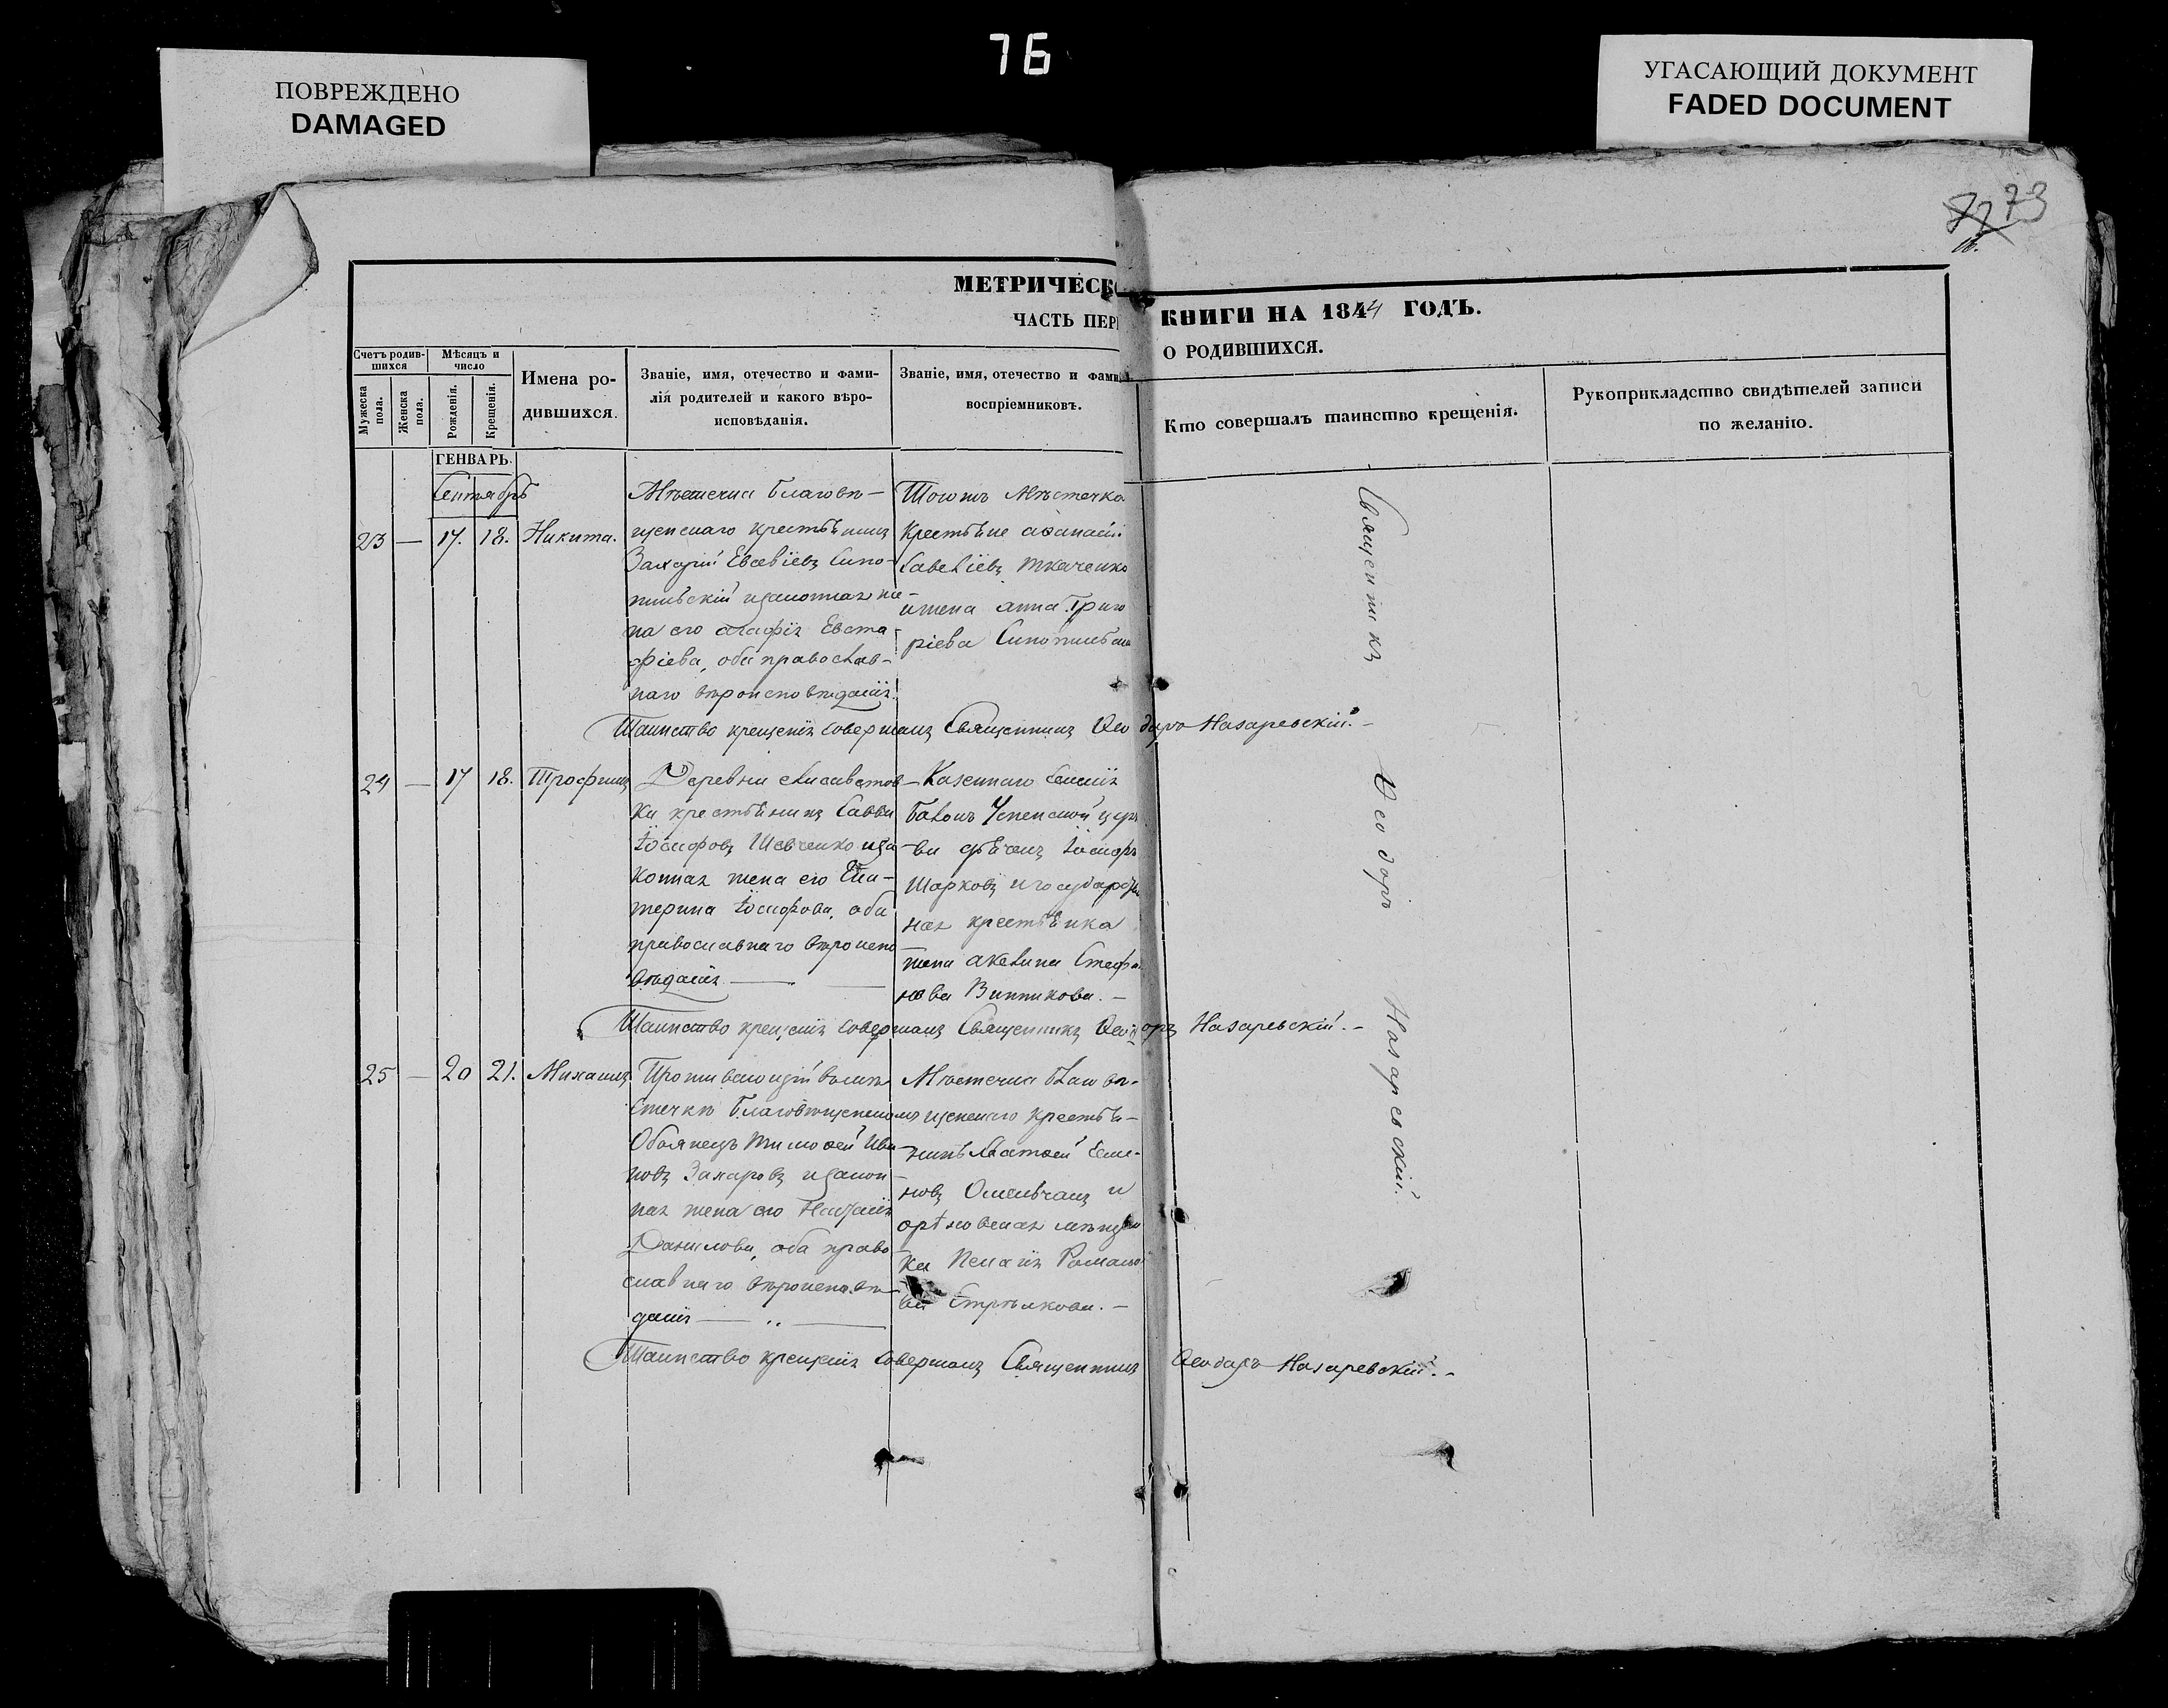 76
ПОВРЕЖДЕНО
DAMAGED
УГАСАЮЩИЙ ДОКУМЕНТ
FADED DOCUMENT
73
МЕТРИЧЕСК
КНИГИ НА 1844 ГОДЪ.
ЧАСТЬ ПЕР
О РОДИВШИХСЯ.
Счетъ родив-
шихся
Мужеска
пола.
Женска
пола.
Мѣсяцъ и
число
Рожденія.
Крещенія.
Имена ро-
дившихся.
Званіе, имя, отечество и фами-
лія родителей и какого вѣро-
исповѣданія.
Званіе, имя, отечество и фами
воспріемниковъ.
Кто совершалъ таинство крещенія.
Рукоприкладство свидѣтелей записи
по желанію.
ГЕНВАРЬ.
Сентябрь
23 — 17. 18. Никита.
Мѣстечка Благовѣ-
щенскаго крестьянинъ
Захарій Евсевіевъ Сино-
пильскій и законная же-
на его Агафія Евста-
фіева, оба православ-
наго вѣроисповѣданія.
Тогожъ мѣстечка
крестьяне Аѳанасій
Савеліевъ Ткаченко
и жена Анна Григо
ріева
Таинство крещенія совершалъ Священникъ Ѳеодоръ Назаревскій. —
24 — 17 18. Трофимъ
Деревни Лисаветов-
ки крестьянинъ Савва
Іосифовъ Шевченко и за-
конная жена его Ека-
терина Іосифова, оба
православнаго вѣроиспо
вѣданія
Казеннаго селенія
Успенской цер
кви дьячекъ Іосифъ
Шарковъ и государствен
ная крестьянка
жена Акелина Стефа
нова Винникова. —
Таинство крещенія совершалъ Священникъ Ѳеодоръ Назаревскій. —
25 — 20 21. Михаилъ
Проживающій въ мѣ
стечкѣ Благовѣщенскомъ
Обоянецъ Тимоѳей Ива-
новъ Захаровъ и закон-
ная жена его Наталія
Данилова, оба право
славнаго вѣроисповѣ-
данія
Мѣстечка Благовѣ-
щенскаго крестья-
нинъ Матѳей Семе-
новъ и
орловская мѣщан
ка Пелагія Романо
ва Стрѣлкова. —
Таинство крещенія совершалъ Священникъ Ѳеодоръ Назаревскій. —
Священникъ Ѳеодоръ Назаревскій.